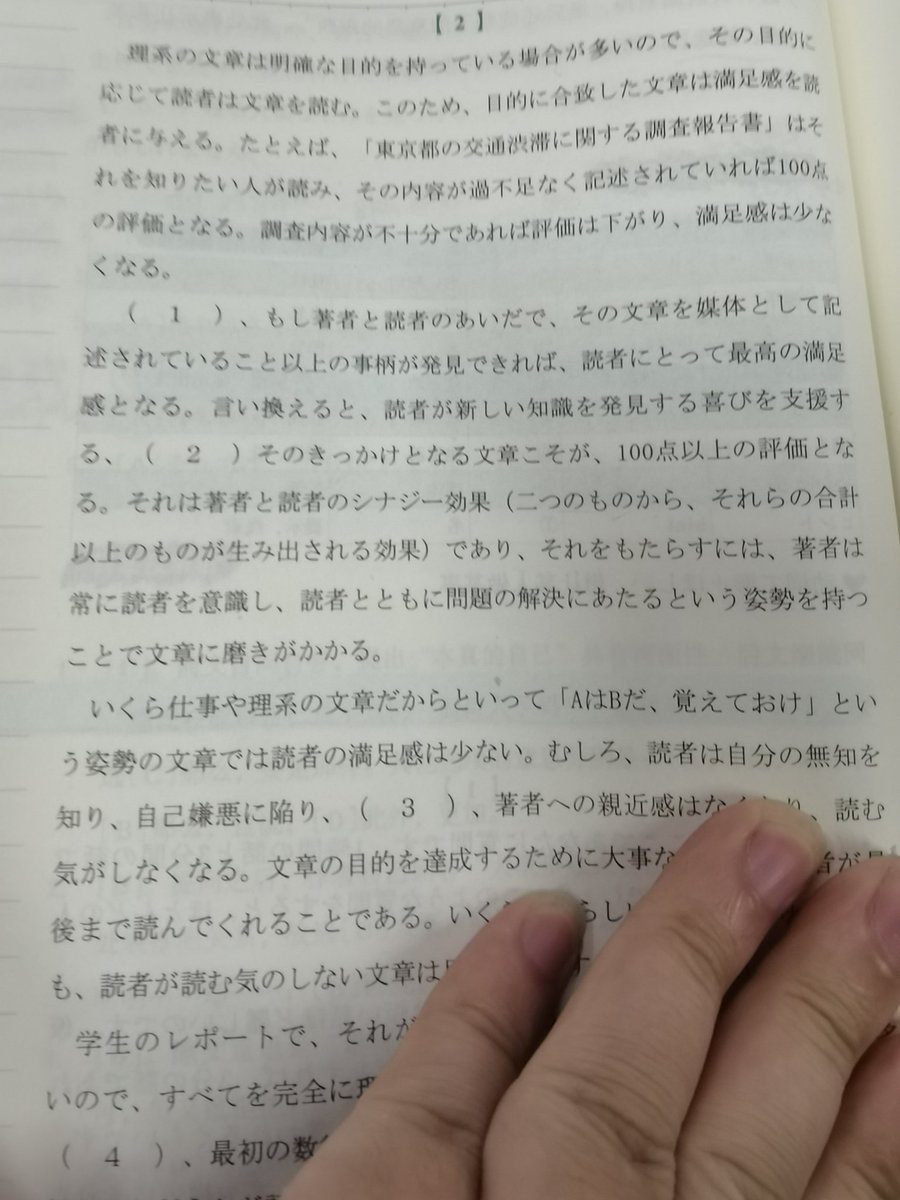 【2】
理系の文章は明確な目的を持っている場合が多いので、その目的に
応じて読者は文章を読む。このため、目的に合致した文章は満足感を読
者に与える。たとえば、「東京都の交通渋滞に関する調査報告書」はそ
れを知りたい人が読み、その内容が過不足なく記述されていれば100点
の評価となる。調査内容が不十分であれば評価は下がり、満足感は少な
くなる。
（　1　）、もし著者と読者のあいだで、その文章を媒体として記
述されていること以上の事柄が発見できれば、読者にとって最高の満足
感となる。言い換えると、読者が新しい知識を発見する喜びを支援す
る、（　2　）そのきっかけとなる文章こそが、100点以上の評価とな
る。それは著者と読者のシナジー効果（二つのものから、それらの合計
以上のものが生み出される効果）であり、それをもたらすには、著者は
常に読者を意識し、読者とともに問題の解決にあたるという姿勢を持つ
ことで文章に磨きがかかる。
いくら仕事や理系の文章だからといって「AはBだ、覚えておけ」とい
う姿勢の文章では読者の満足感は少ない。むしろ、読者は自分の無知を
知り、自己嫌悪に陥り、（　3　）、著者への親近感はな　り、読む
気がしなくなる。文章の目的を達成するために大事な　者が
後まで読んでくれることである。いく　らし
も、読者が読む気のしない文章は
学生のレポートで、それが
いので、すべてを完全に
（　4　）、最初の数